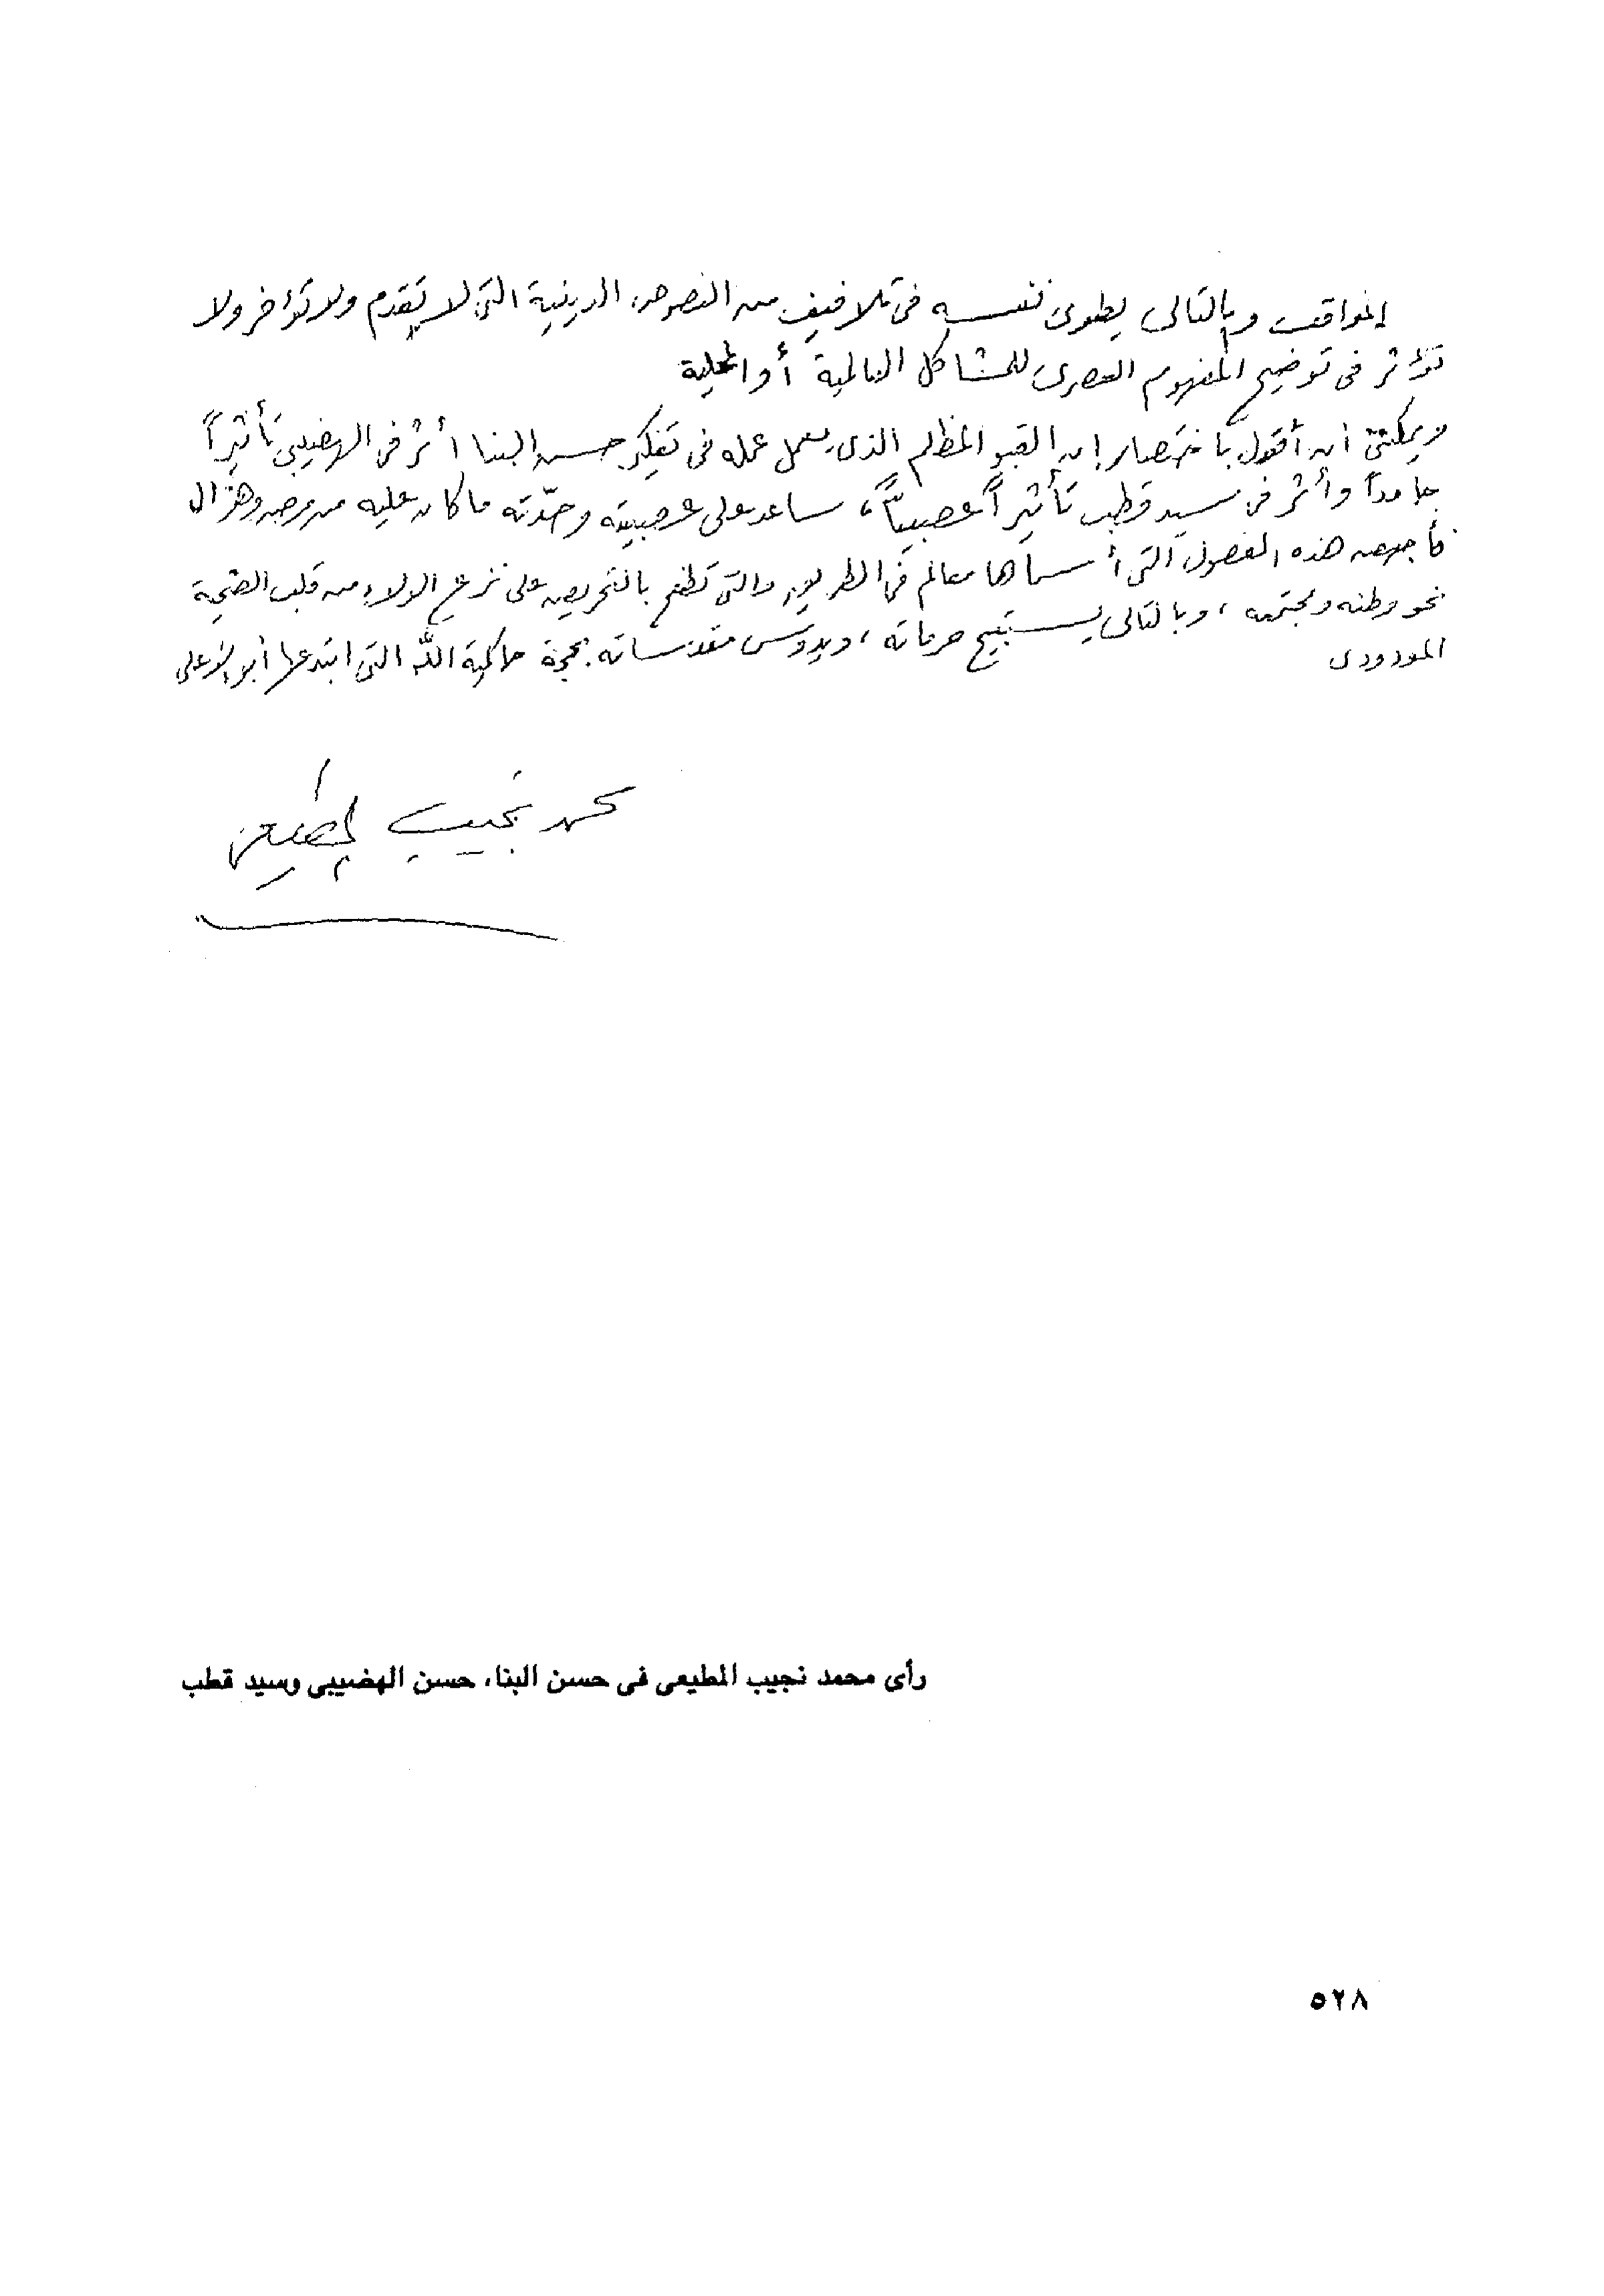 المواقف وبالتالى يطوى نفسه فى تلافيف من النصوص الدينية التى لا تقدم ولا تؤخر ولا
تؤثر فى توضيح المفهوم العصرى للمشاكل العالمية أو المحلية
ويمكننى أن أقول باختصار إن القبو المظلم الذى يعمل عمله فى تفكير حسن البنا أثر فى الهضيبى تأثيراً
جامداً وأثر فى سيد قطب تأثيراً عصبياً، ساعد على عصبيته وحدّته ما كان عليه من مرض وهزال
فأجهض هذه الفصول التى أسماها معالم فى الطريق والتى تطفح بالتحريض على نزع الولاء من قلب الضحية
نحو وطنه ومجتمعه، وبالتالى يستبيح حرماته، ويدوس مقدساته بحجة حاكمية الله التى ابتدعها أبو الأعلى
المودودى
محمد نجيب المطيعى
رأى محمد نجيب المطيعى فى حسن البنا، حسن الهضيبى وسيد قطب
٥٢٨